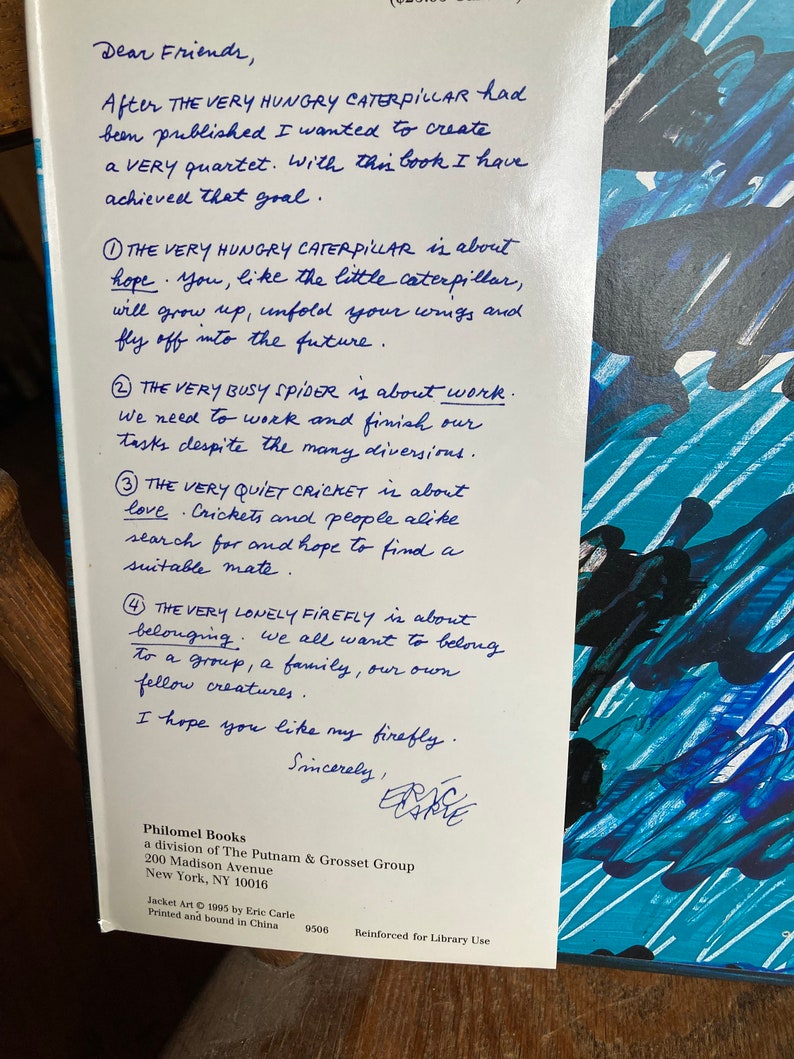 Dear Friends,
After THE VERY HUNGRY CATERPILLAR had
been published I wanted to create
a VERY quartet. With this book I have
achieved that goal.
① THE VERY HUNGRY CATERPILLAR is about
hope. You, like the little caterpillar,
will grow up, unfold your wings and
fly off into the future.
② THE VERY BUSY SPIDER is about work.
We need to work and finish our
tasks despite the many diversions.
③ THE VERY QUIET CRICKET is about
love. Crickets and people alike
search for and hope to find a
suitable mate.
④ THE VERY LONELY FIREFLY is about
belonging. We all want to belong
to a group, a family, our own
fellow creatures.
I hope you like my firefly.
Sincerely,
ERIC
CARLE
Philomel Books
a division of The Putnam & Grosset Group
200 Madison Avenue
New York, NY 10016
Jacket Art © 1995 by Eric Carle
Printed and bound in China 9506 Reinforced for Library Use